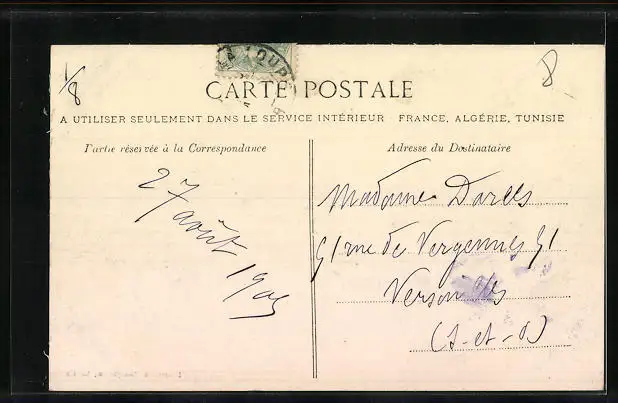 1/8
8
LOUP
CARTE POSTALE
A UTILISER SEULEMENT DANS LE SERVICE INTÉRIEUR - FRANCE, ALGÉRIE, TUNISIE
Partie réservée à la Correspondance
Adresse du Destinataire
27
août
1905
Madame
rue de Vergennes
(S-et-O)